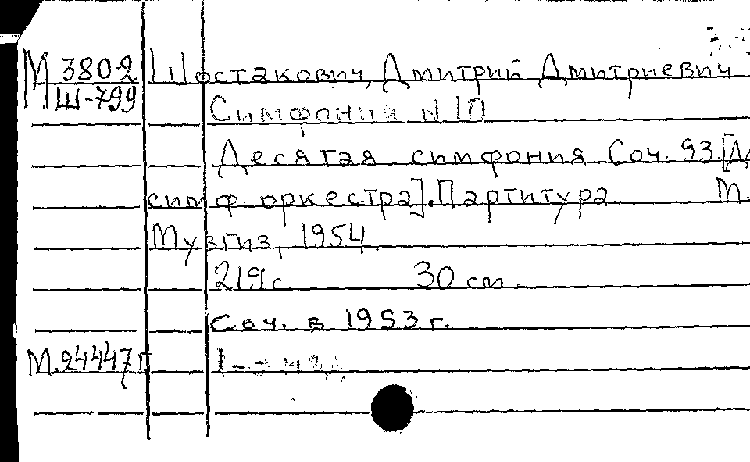 М 380-2 Шостакович, Дмитрий Дмитриевич
Ш-799
Симфония N 10
Десятая симфония Соч. 93.[Д
симф оркестра].Партитура М.
Музгиз, 1954
219с 30 см.
Соч. в 1953 г.
М.24447